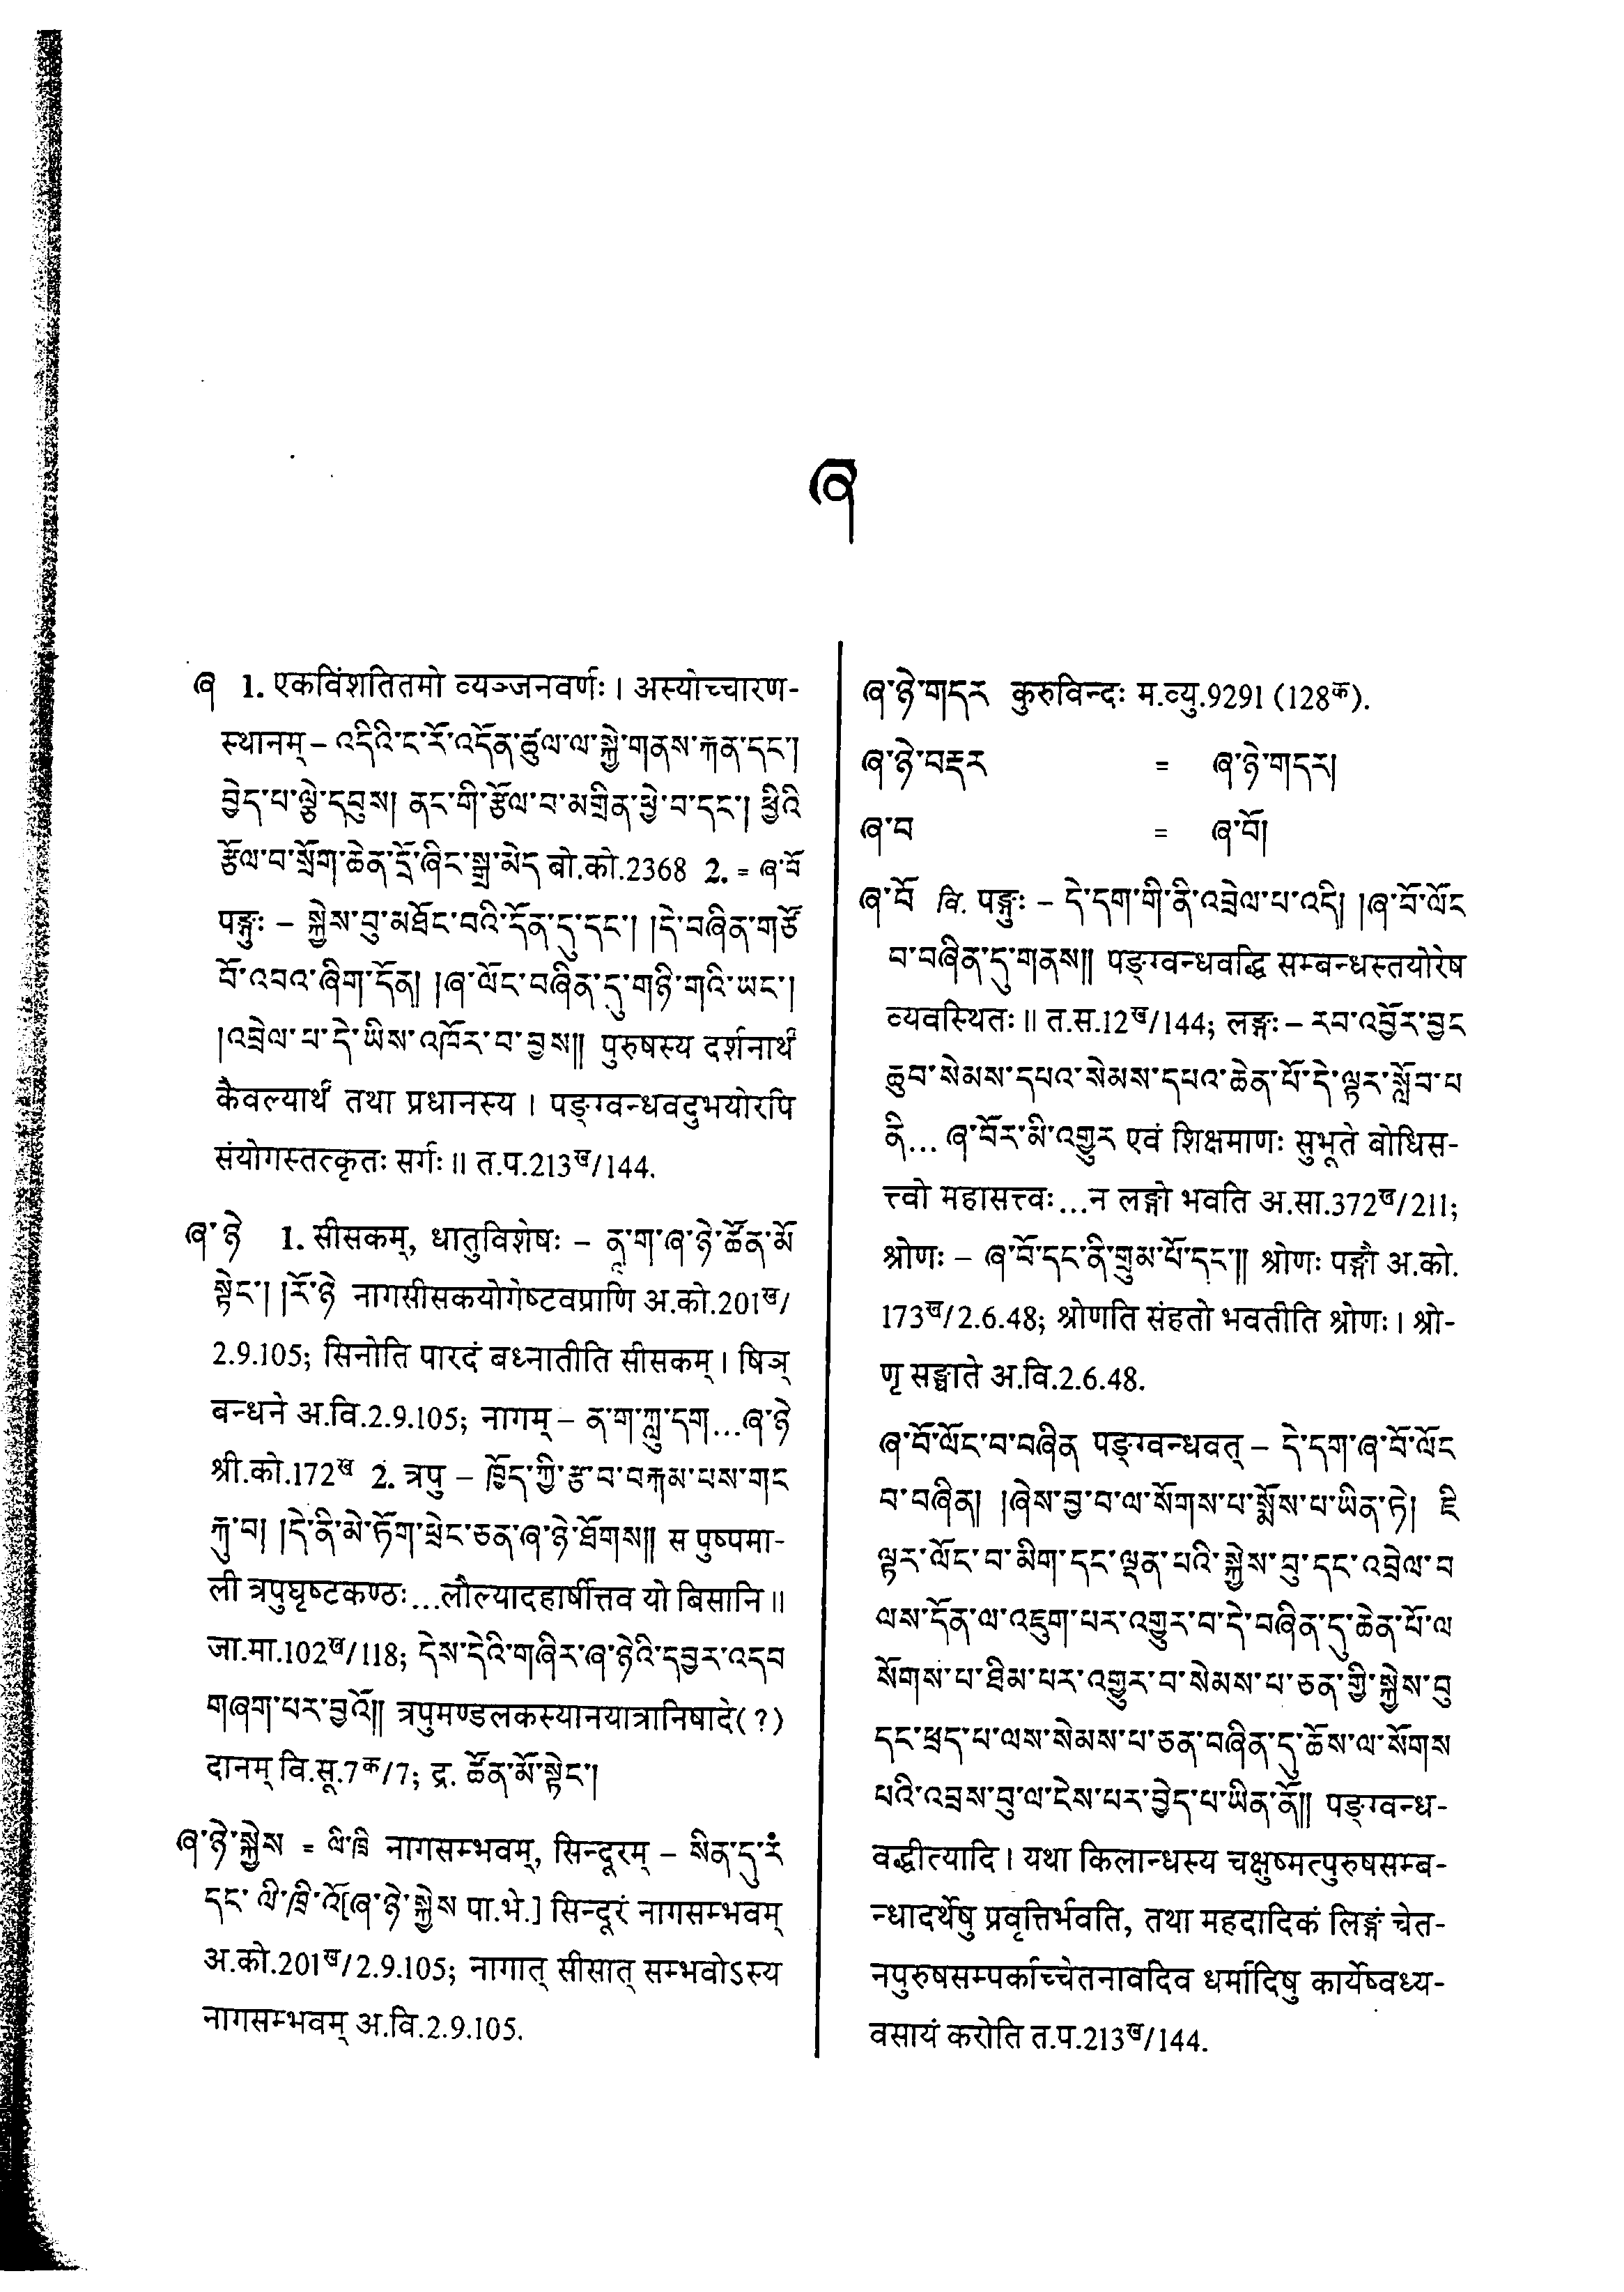 ཞ
ཞ 1. एकविंशतितमो व्यञ्जनवर्णः । अस्योच्चारण-
स्थानम् – འདིའི་ང་རོ་འདོན་ཚུལ་ལ་སྐྱེ་གནས་རྐན་དང་།
བྱེད་པ་ལྕེ་དབུས། ནང་གི་རྩོལ་བ་མགྲིན་ཕྱེ་བ་དང་། ཕྱིའི
རྩོལ་བ་སྲོག་ཆེན་དྲོ་ཞིང་སྒྲ་མེད बो.को.2368 2. = ཞ་བོ
पङ्गुः – སྐྱེས་བུ་མཐོང་བའི་དོན་དུ་དང་། །དེ་བཞིན་གཙོ
བོ་འབའ་ཞིག་དོན། །ཞ་ལོང་བཞིན་དུ་གཉི་གའི་ཡང་།
།འབྲེལ་པ་དེ་ཡིས་འཁོར་བ་བྱས།། पुरुषस्य दर्शनार्थं
कैवल्यार्थं तथा प्रधानस्य । पङ्ग्वन्धवदुभयोरपि
संयोगस्तत्कृतः सर्गः ॥ त.प.213ख/144.
ཞ་ཉེ 1. सीसकम्, धातुविशेषः – ནཱ་ག་ཞ་ཉེ་ཚོན་མོ
སྟེང་། །རོ་ཉེ नागसीसकयोगेष्टवप्राणि अ.को.201ख/
2.9.105; सिनोति पारदं बध्नातीति सीसकम् । षिञ्
बन्धने अ.वि.2.9.105; नागम् – ན་ག་ཀླུ་དག...ཞ་ཉེ
श्री.को.172ख 2. त्रपु – ཁྱོད་ཀྱི་རྩ་བ་བརྐམ་པས་གང
རྐུ་བ། །དེ་ནི་མེ་ཏོག་ཕྲེང་ཅན་ཞ་ཉེ་ཐོགས།། स पुष्पमा-
ली त्रपुघृष्टकण्ठः...लौल्यादहार्षीत्तव यो बिसानि ॥
जा.मा.102ख/118; དེས་དེའི་གཞིར་ཞ་ཉེའི་དབྱར་འདབ
གཞག་པར་བྱའོ།། त्रपुमण्डलकस्यानयात्रानिषादे(?)
दानम् वि.सू.7क/7; द्र. ཚོན་མོ་སྟེང་།
ཞ་ཉེ་སྐྱེས = ལི་ཁྲི नागसम्भवम्, सिन्दूरम् – སིན་དུ་རཾ
དང་ ལི་ཁྲི་འོ[ཞ་ཉེ་སྐྱེས पा.भे.] सिन्दूरं नागसम्भवम्
अ.को.201ख/2.9.105; नागात् सीसात् सम्भवोऽस्य
नागसम्भवम् अ.वि.2.9.105.
ཞ་ཉེ་གདར कुरुविन्दः म.व्यु.9291 (128क).
ཞ་ཉེ་བརྡར = ཞ་ཉེ་གདར།
ཞ་བ = ཞ་བོ།
ཞ་བོ वि. पङ्गुः – དེ་དག་གི་ནི་འབྲེལ་པ་འདི། །ཞ་བོ་ལོང
བ་བཞིན་དུ་གནས།། पङ्ग्वन्धवद्धि सम्बन्धस्तयोरेष
व्यवस्थितः ॥ त.स.12ख/144; लङ्गः – རབ་འབྱོར་བྱང
ཆུབ་སེམས་དཔའ་སེམས་དཔའ་ཆེན་པོ་དེ་ལྟར་སློབ་པ
ནི... ཞ་བོར་མི་འགྱུར एवं शिक्षमाणः सुभूते बोधिस-
त्त्वो महासत्त्वः...न लङ्गो भवति अ.सा.372ख/211;
श्रोणः – ཞ་བོ་དང་ནི་གྲུམ་པོ་དང་།། श्रोणः पङ्गौ अ.को.
173ख/2.6.48; श्रोणति संहतो भवतीति श्रोणः । श्रो-
णृ सङ्घाते अ.वि.2.6.48.
ཞ་བོ་ལོང་བ་བཞིན पङ्ग्वन्धवत् – དེ་དག་ཞ་བོ་ལོང
བ་བཞིན། །ཞེས་བྱ་བ་ལ་སོགས་པ་སྨོས་པ་ཡིན་ཏེ། ཇི
ལྟར་ལོང་བ་མིག་དང་ལྡན་པའི་སྐྱེས་བུ་དང་འབྲེལ་བ
ལས་དོན་ལ་འཇུག་པར་འགྱུར་བ་དེ་བཞིན་དུ་ཆེན་པོ་ལ
སོགས་པ་ཐིམ་པར་འགྱུར་བ་སེམས་པ་ཅན་གྱི་སྐྱེས་བུ
དང་ཕྲད་པ་ལས་སེམས་པ་ཅན་བཞིན་དུ་ཆོས་ལ་སོགས
པའི་འབྲས་བུ་ལ་ངེས་པར་བྱེད་པ་ཡིན་ནོ།། पङ्ग्वन्ध-
वद्धीत्यादि । यथा किलान्धस्य चक्षुष्मत्पुरुषसम्ब-
न्धादर्थेषु प्रवृत्तिर्भवति, तथा महदादिकं लिङ्गं चेत-
नपुरुषसम्पर्काच्चेतनावदिव धर्मादिषु कार्येष्वध्य-
वसायं करोति त.प.213ख/144.